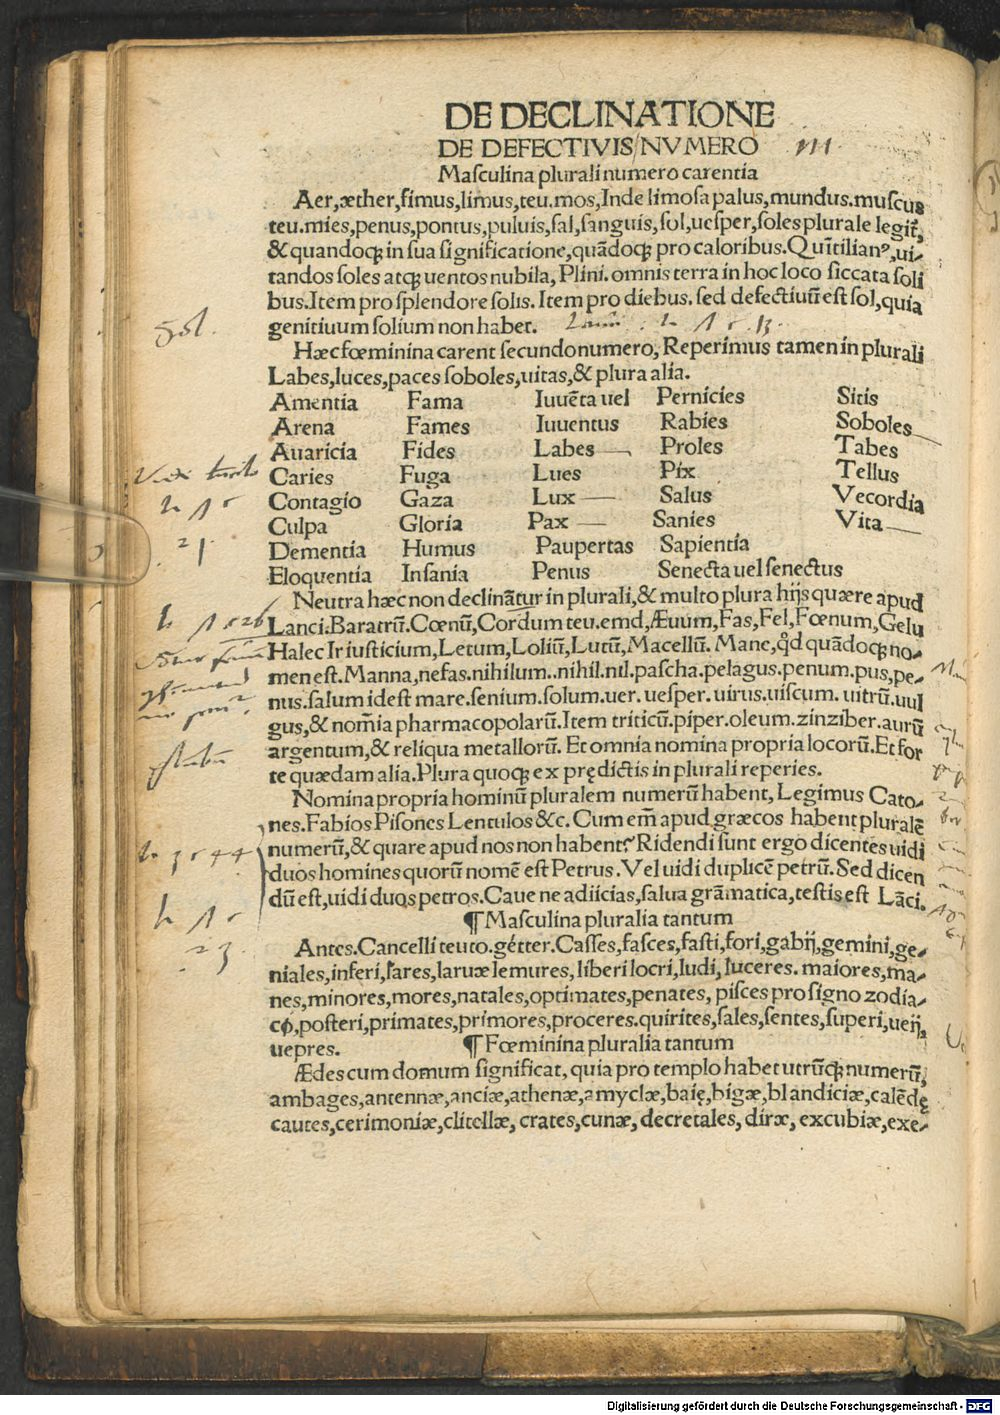 DE DECLINATIONE
DE DEFECTIVIS/NVMERO
Masculina plurali numero carentia
Aer, æther, fimus, limus, teu. mos, Inde limosa palus, mundus. muscus
teu. mies, penus, pontus, puluis, sal, sanguis, sol, uesper, soles plurale legit̃,
& quandoqꝫ in sua significatione, quãdoqꝫ pro caloribus. Quĩtilianꝰ, ui⸗
tandos soles atqꝫ uentos nubila, Plini. omnis terra in hoc loco siccata soli
bus. Item pro splendore solis. Item pro diebus. sed defectiuũ est sol, quia
genitiuum solium non habet.
Sol.
Hæc fœminina carent secundo numero, Reperimus tamen in plurali
Labes, luces, paces soboles, uitas, & plura alia.
Amentia Fama Iuuẽta uel Pernicies Sitis
Arena Fames Iuuentus Rabies Soboles
Auaricia Fides Labes Proles Tabes
Caries Fuga Lues Pix Tellus
Contagio Gaza Lux Salus Vecordia
Culpa Gloria Pax Sanies Vita
Dementia Humus Paupertas Sapientia
Eloquentia Insania Penus Senecta uel senectus
Neutra hæc non declinãtur in plurali, & multo plura hijs quære apud
Lanci. Baratrũ. Cœnũ, Cordum teu. emd, Æuum, Fas, Fel, Fœnum, Gelu
Halec Ir iusticium, Letum, Loliũ, Lutũ, Macellũ. Mane, qđ quãdoqꝫ no⸗
men est. Manna, nefas. nihilum.. nihil. nil. pascha. pelagus. penum. pus, pe⸗
nus. salum idest mare. senium. solum. uer. uesper. uirus. uiscum. uitrũ. uul
gus, & nomĩa pharmacopolarũ. Item triticũ. piper. oleum. zinziber. aurũ
argentum, & reliqua metallorũ. Et omnia nomina propria locorũ. Et for
te quædam alia. Plura quoqꝫ ex prędictis in plurali reperies.
Nomina propria hominũ pluralem numerũ habent, Legimus Cato⸗
nes. Fabios Pisones Lentulos &c. Cum em̃ apud græcos habent pluralẽ
numerũ, & quare apud nos non habent? Ridendi sunt ergo dicentes uidi
duos homines quorũ nomẽ est Petrus. Vel uidi duplicẽ petrũ. Sed dicen
dũ est, uidi duos petros. Caue ne adiicias, salua grãmatica, testis est Lãci.
¶ Masculina pluralia tantum
Antes. Cancelli teuto. gétter. Casses, fasces, fasti, fori, gabij, gemini, ge⸗
niales, inferi, lares, laruæ lemures, liberi locri, ludi, luceres. maiores, ma⸗
nes, minores, mores, natales, optimates, penates, pisces pro signo zodia⸗
co, posteri, primates, primores, proceres. quirites, sales, sentes, superi, ueij,
uepres. ¶ Fœminina pluralia tantum
Ædes cum domum significat, quia pro templo habet utrũqꝫ numerũ,
ambages, antennæ, anciæ, athenæ, amyclæ, baię, bigæ, blandiciæ, calẽdę
cautes, cerimoniæ, clitellæ, crates, cunæ, decretales, diræ, excubiæ, exe⸗
Digitalisierung gefördert durch die Deutsche Forschungsgemeinschaft - DFG